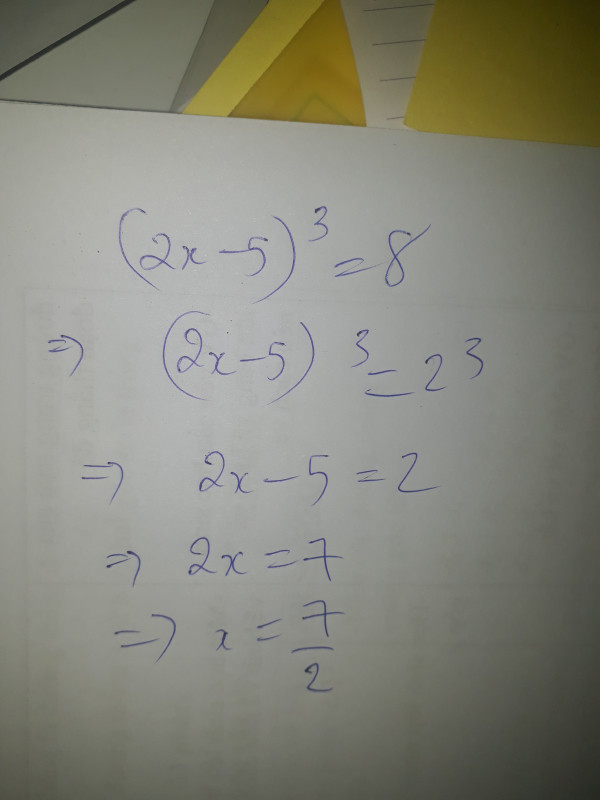 (2x-5)³ = 8
⇒ (2x-5)³ = 2³
⇒ 2x-5 = 2
⇒ 2x = 7
⇒ x = 7/2